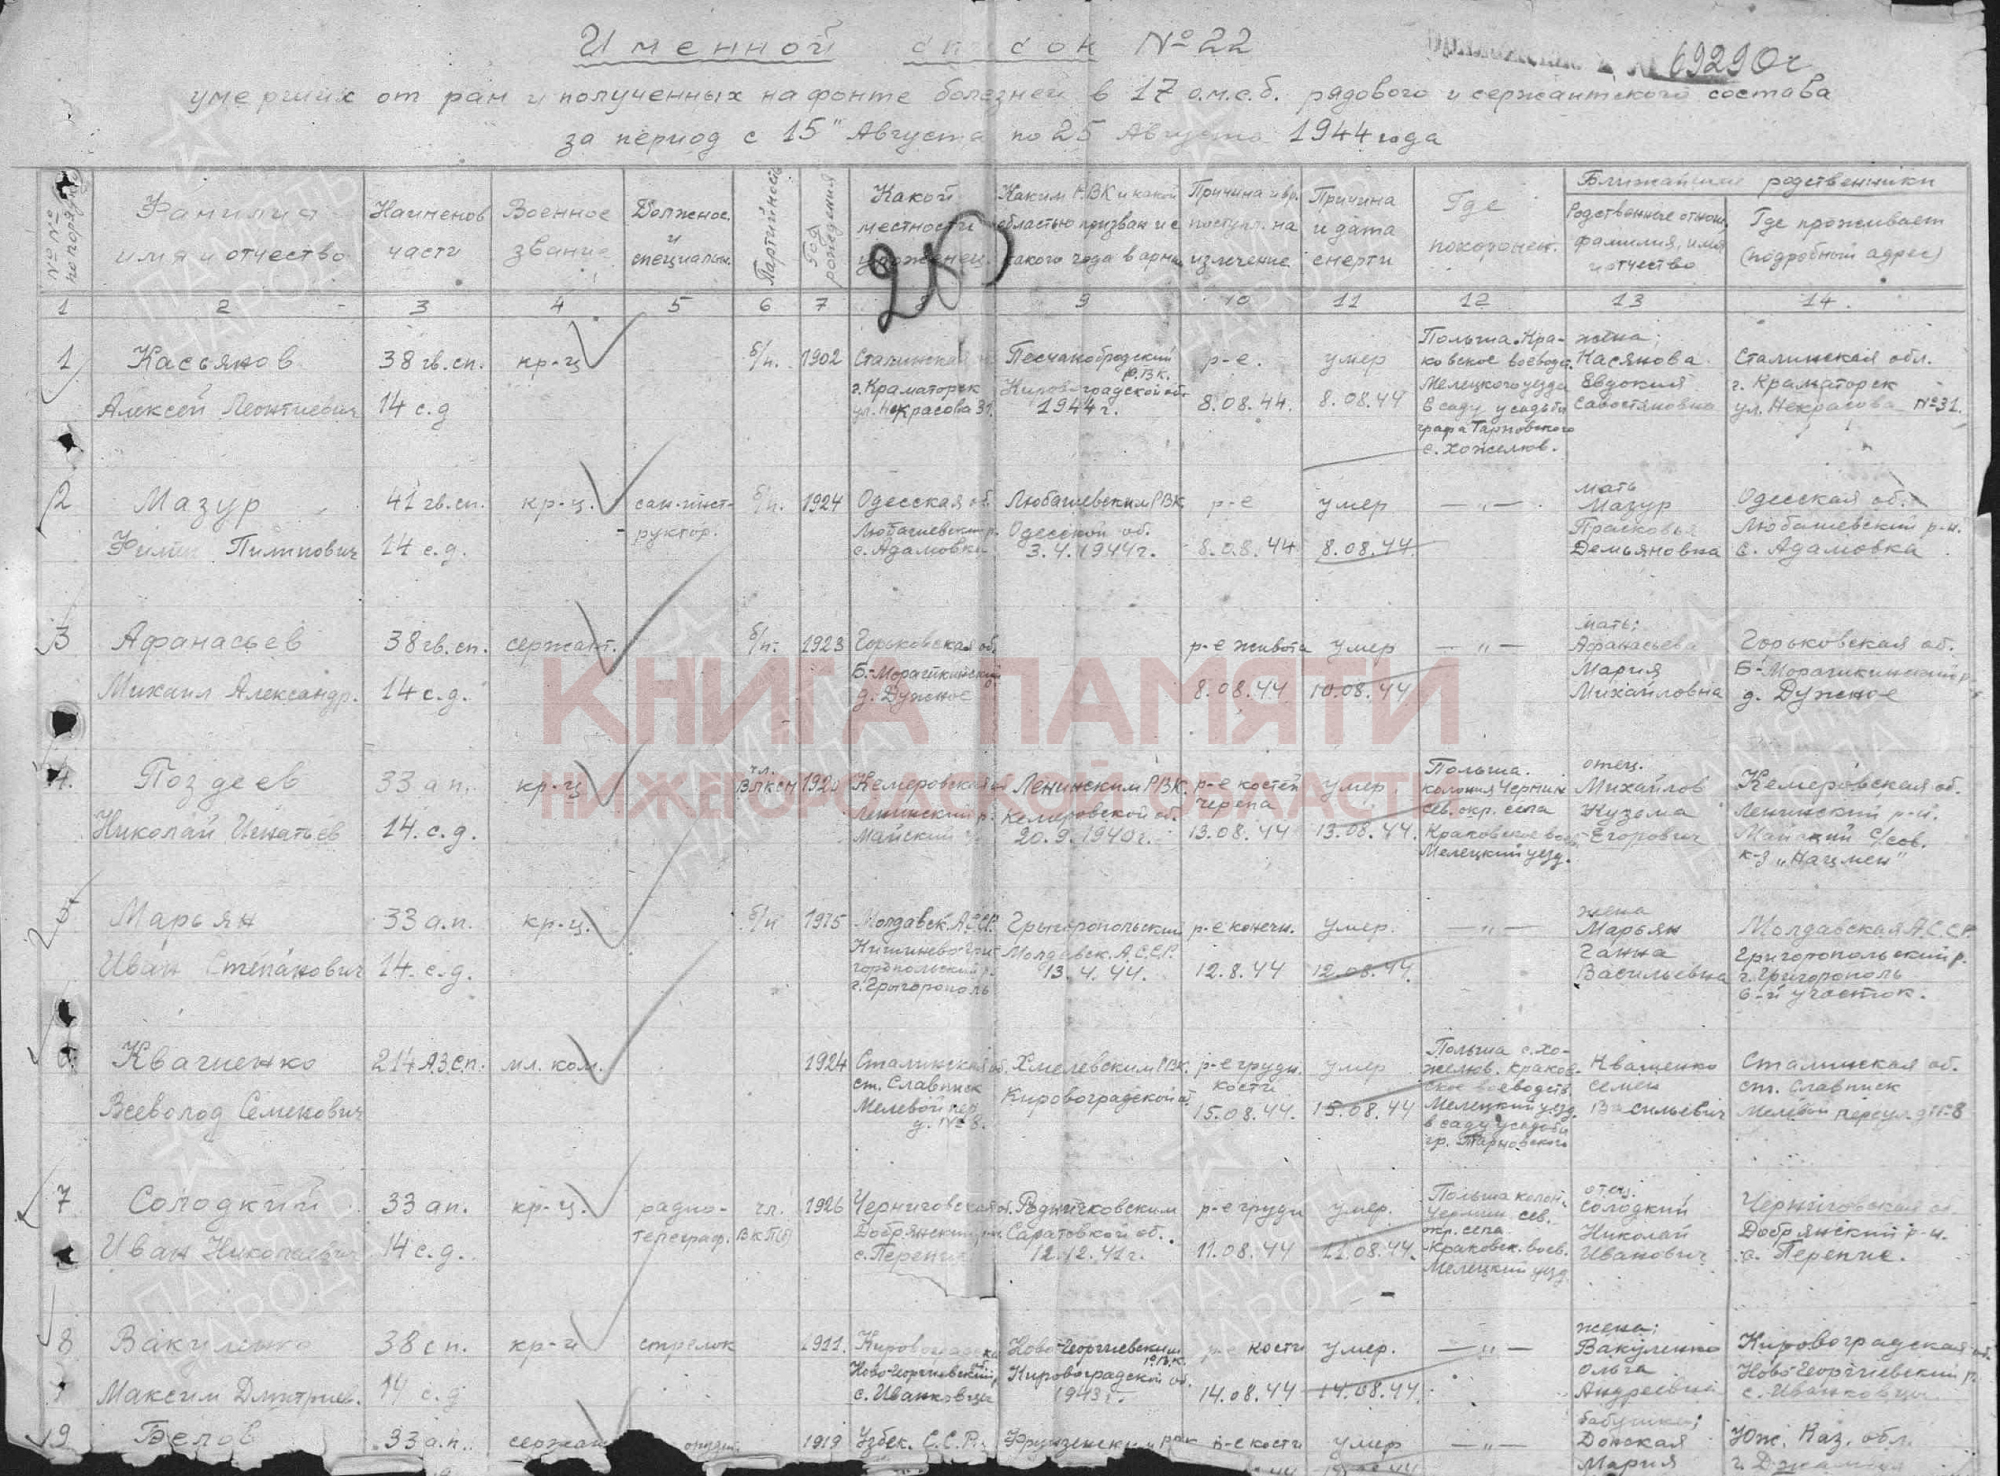 Именной список № 22
69290с
умерших от ран и полученных на фонте болезней в 17 о.м.с.б. рядового и сержантского состава
за период с 15" Августа по 25 Августа 1944 года
№№ по порядку
Фамилия имя и отчество
Наименов части
Военное звание
Должнос. и специальн.
Партийность
Год рождения
Какой местности уроженец
Каким РВК и какой областью призван и с какого года в арми
Причина и вр. поступл. на излечение
Причина и дата смерти
Где похоронен.
Ближайшие родственники
Родственные отнош, фамилия, имя и отчество
Где проживает (подробный адрес)
1 2 3 4 5 6 7 8 9 10 11 12 13 14
20
1 Касьянов 38 гв.сп. кр-ц б/п. 1902 Сталинская Песчанобродский р-е. умер Польша. Кра- жена;
РВК. ковское воевод. Касянова Сталинская обл.
г. Краматорск Кировоградской об. Мелецкого уезда Евдокия г. Краматорск
Алексей Леонтиевич 14 с.д ул. Некрасова 31. 1944 г. 8.08.44. 8.08.44 в саду усадьбы Савостяновна ул. Некрасова №31.
графа Тарновского
с. Хожелюв.
2 Мазур 41 гв.сп. кр-ц. сан-инст- б/п. 1924 Одесская об. Любашевским РВК р-е умер — " — мать Мазур Одесская об.
руктор. Любашевский р. Одесской об. Прасковья Любашевский р-н.
Филип Пилипович 14 с.д. с. Адамовка 3.4.1944 г. 8.08.44 8.08.44. Демьяновна с. Адамовка
3 Афанасьев 38 гв.сп. сержант. б/п. 1923 Горьковская об. р-е живота умер — " — мать; Афанасьева Горьковская об.
Б-Морашкинский Мария Б-Морашкинский р
Михаил Александр. 14 с.д. д. Дужное 8.08.44 10.08.44 Михайловна д. Дужное
КНИГА ПАМЯТИ
НИЖЕГОРОДСКОЙ ОБЛАСТИ
4. Поздеев 33 ап. кр-ц чл. ВЛКСМ Кемеровская Ленинским РВК. р-е костей умер. Польша. отец.
черепа колония Чермин Михайлов Кемеровская об.
Ленинский р. Кемеровской об. сев. окр. села Кузьма Ленинский р-н.
Николай Игнатьев 14. с.д. Майский 20.9.1940 г. 13.08.44 13.08.44. Краковское воев. Егорович Майский с/сов.
Мелецкий уезд. к-з „Нацмен"
5 Марьян 33 а.п. кр-ц. б/п Молдавск. А.С.С.Р. р-е конечн. умер. — " — жена Марьян Молдавская А.С.С.Р.
Молдавск. А.С.С.Р. Ганна Григоропольский р.
Иван Степанович 14. с.д. 13.4.44. 12.8.44 12.08.44. Васильевна г. Григорополь
г. Грыгорополь 6-й участок.
6. Квашенко 214 АЗСП. мл. ком. 1924 Сталинская об. Хмелевским РВК. р-е грудн. умер Польша с. Хо- Квашенко Сталинская об.
ст. Славянск кости желюв. Краков- Семен ст. Славянск
Кировоградской об. ское воеводств.
Всеволод Семенович Мелевой пер. 15.08.44. 15.08.44 Мелецкий уезд. Васильевич Мелевой переул. д №8
д. №8. в саду усадьбы
гр. Тарновского
7 Солодкий 33 ап. кр-ц. радио- чл. 1926 Черниговская об. Родничковским р-е груди умер. Польша колон. отец. Солодкий Черниговская об.
телеграф. ВКП(б) Добрянский Саратовкой об. Чермин. сев. Николай Добрянский р-н.
окр. села
Иван Николаевич 14 с.д. с. Перепис 12.12.41 г. 11.08.44 11.08.44. Краковск. воев. Иванович с. Перепис.
Мелецкий уезд
8 Вакуленко 38 сп. кр-ц стрелок 1911. Кировоградска Ново-Георгиевским р-е кости умер. — " — жена; Вакуленко Кировоградская об.
Ново-Георгиевский, РВК. Кировоградской об. Ольга Ново-Георгиевский р
Максим Дмитриев. 14 с.д с. Иванковца 1943 г. 14.08.44 14.08.44. Андреевна с. Иванковцы
9 Белов 33 а.п. сержан 1919 Узбек. С.С.Р. Фрунзенским рвк р-е кости умер — " — бабушка; Донская Юж. Каз. обл.
Мария
ПАМЯТЬ НАРОДА